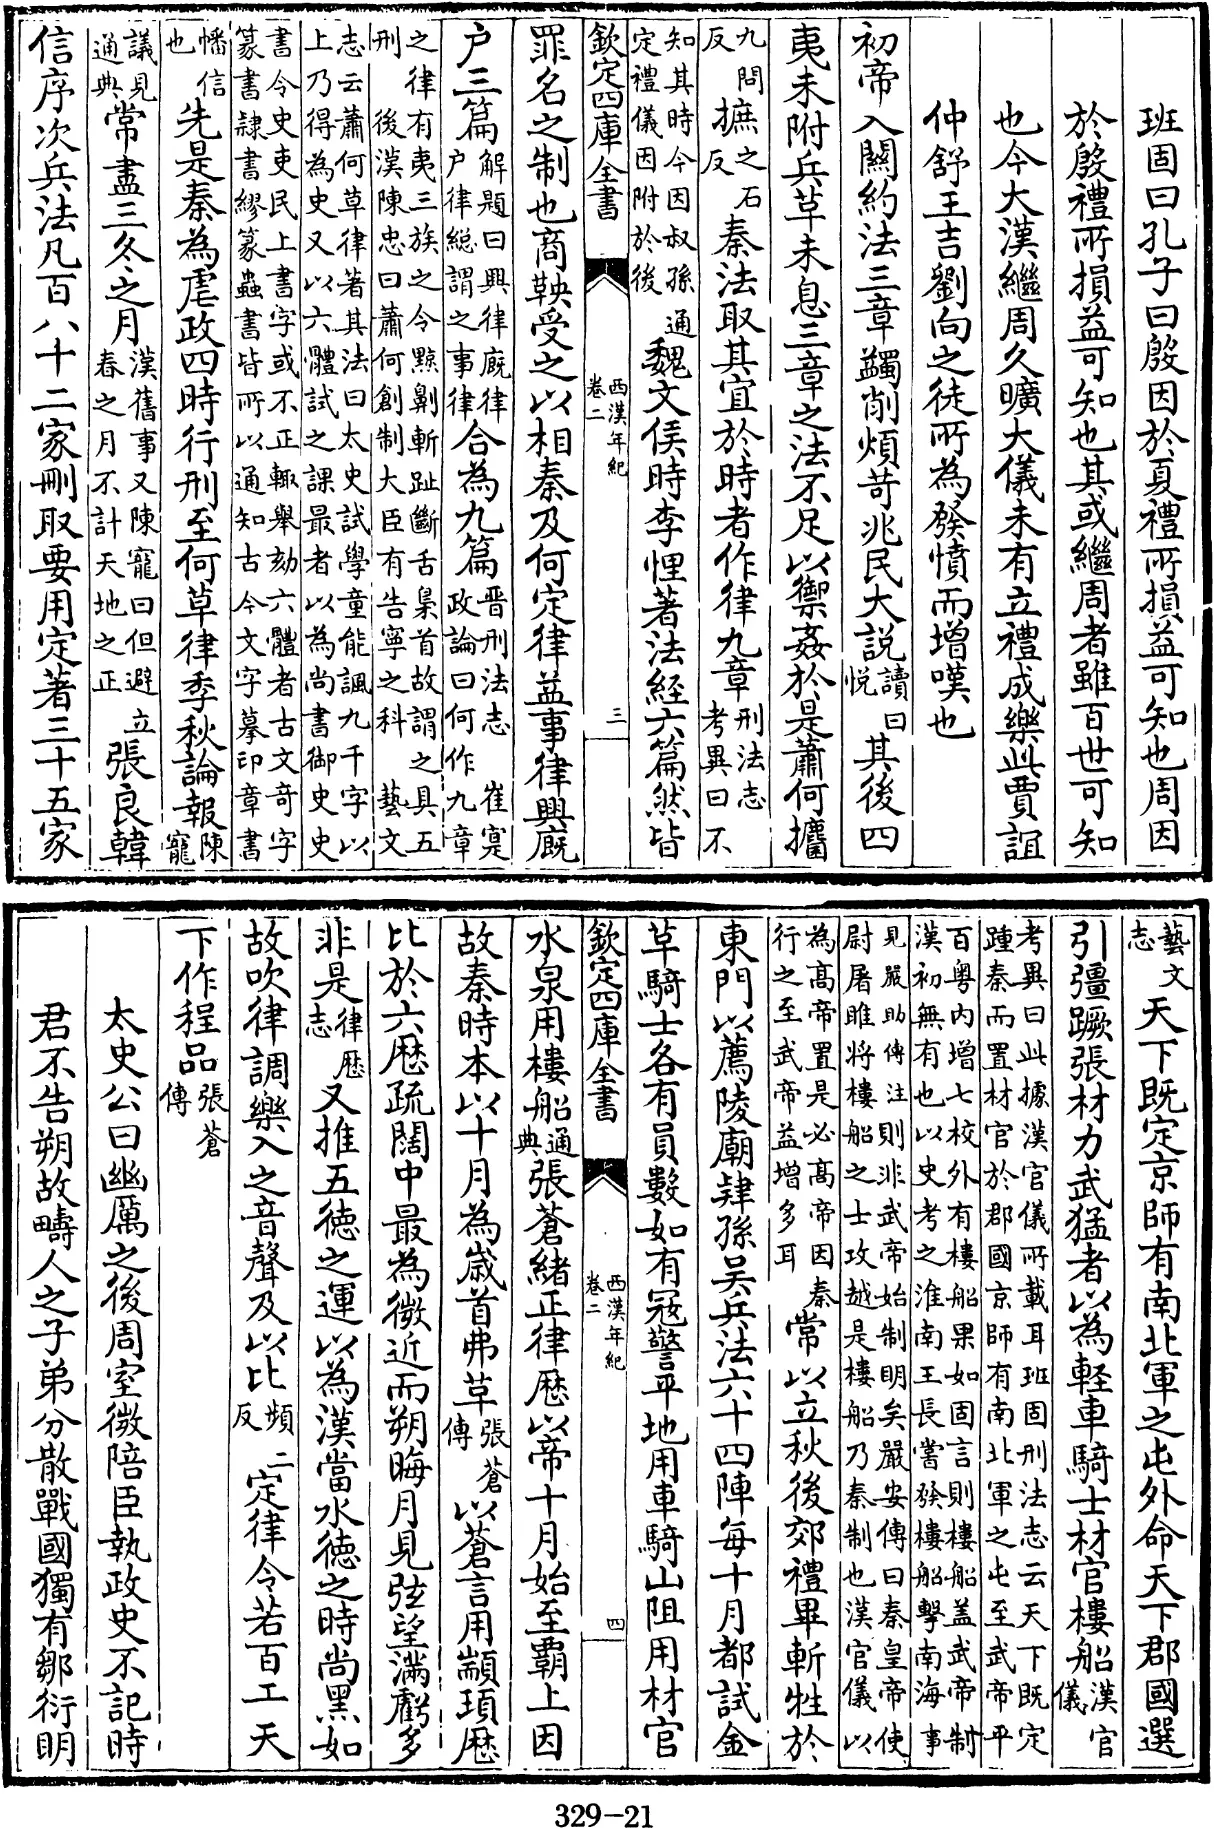 班固曰孔子曰殷因於夏禮所損益可知也周因
於殷禮所損益可知也其或繼周者雖百世可知
也今大漢繼周久曠大儀未有立禮成樂此賈誼
仲舒王吉劉向之徒所為發憤而增嘆也
初帝入關約法三章蠲削煩苛兆民大説讀曰悦其後四
夷未附兵革未息三章之法不足以禦姦於是蕭何攟
九問反摭之石反秦法取其宜於時者作律九章刑法志考異曰不
知其時今因叔孫通定禮儀因附於後魏文侯時李悝著法經六篇然皆
欽定四庫全書 西漢年紀 卷二 三
罪名之制也商鞅受之以相秦及何定律益事律興廐
户三篇解題曰興律廐律户律總謂之事律合為九篇晉刑法志 崔寔政論曰何作九章
之律有夷三族之令黥劓斬趾斷舌梟首故謂之具五
刑 後漢陳忠曰蕭何創制大臣有告寧之科 藝文
志云蕭何草律著其法曰太史試學童能諷九千字以
上乃得為史又以六體試之課最者以為尚書御史史
書令史吏民上書字或不正輙舉劾六體者古文竒字
篆書隸書繆篆蟲書皆所以通知古今文字摹印章書
幡信也先是秦為虐政四時行刑至何草律季秋論報陳寵
議見通典常盡三冬之月漢舊事又陳寵曰但避立春之月不計天地之正張良韓
信序次兵法凡百八十二家刪取要用定著三十五家
藝文志天下既定京師有南北軍之屯外命天下郡國選
引彊蹶張材力武猛者以為輕車騎士材官樓船漢官儀
考異曰此據漢官儀所載耳班固刑法志云天下既定
踵秦而置材官於郡國京師有南北軍之屯至武帝平
百粤内增七校外有樓船果如固言則樓船盖武帝制
漢初無有也以史考之淮南王長嘗發樓船擊南海事
見嚴助傳注則非武帝始制明矣嚴安傳曰秦皇帝使
尉屠睢將樓船之士攻越是樓船乃秦制也漢官儀以
為高帝置是必高帝因秦行之至武帝益增多耳常以立秋後郊禮畢斬牲於
東門以薦陵廟肄孫吳兵法六十四陣每十月都試金
草騎士各有員數如有冦警平地用車騎山阻用材官
欽定四庫全書 西漢年紀 卷二 四
水泉用樓船通典張蒼緒正律歴以帝十月始至霸上因
故秦時本以十月為歲首弗草張蒼傳以蒼言用顓頊歴
比於六歴疏闊中最為微近而朔晦月見弦望滿虧多
非是律歴志又推五德之運以為漢當水德之時尚黑如
故吹律調樂入之音聲及以比頻二反定律令若百工天
下作程品張蒼傳
太史公曰幽厲之後周室微陪臣執政史不記時
君不告朔故疇人之子弟分散戰國獨有鄒衍明
329-21